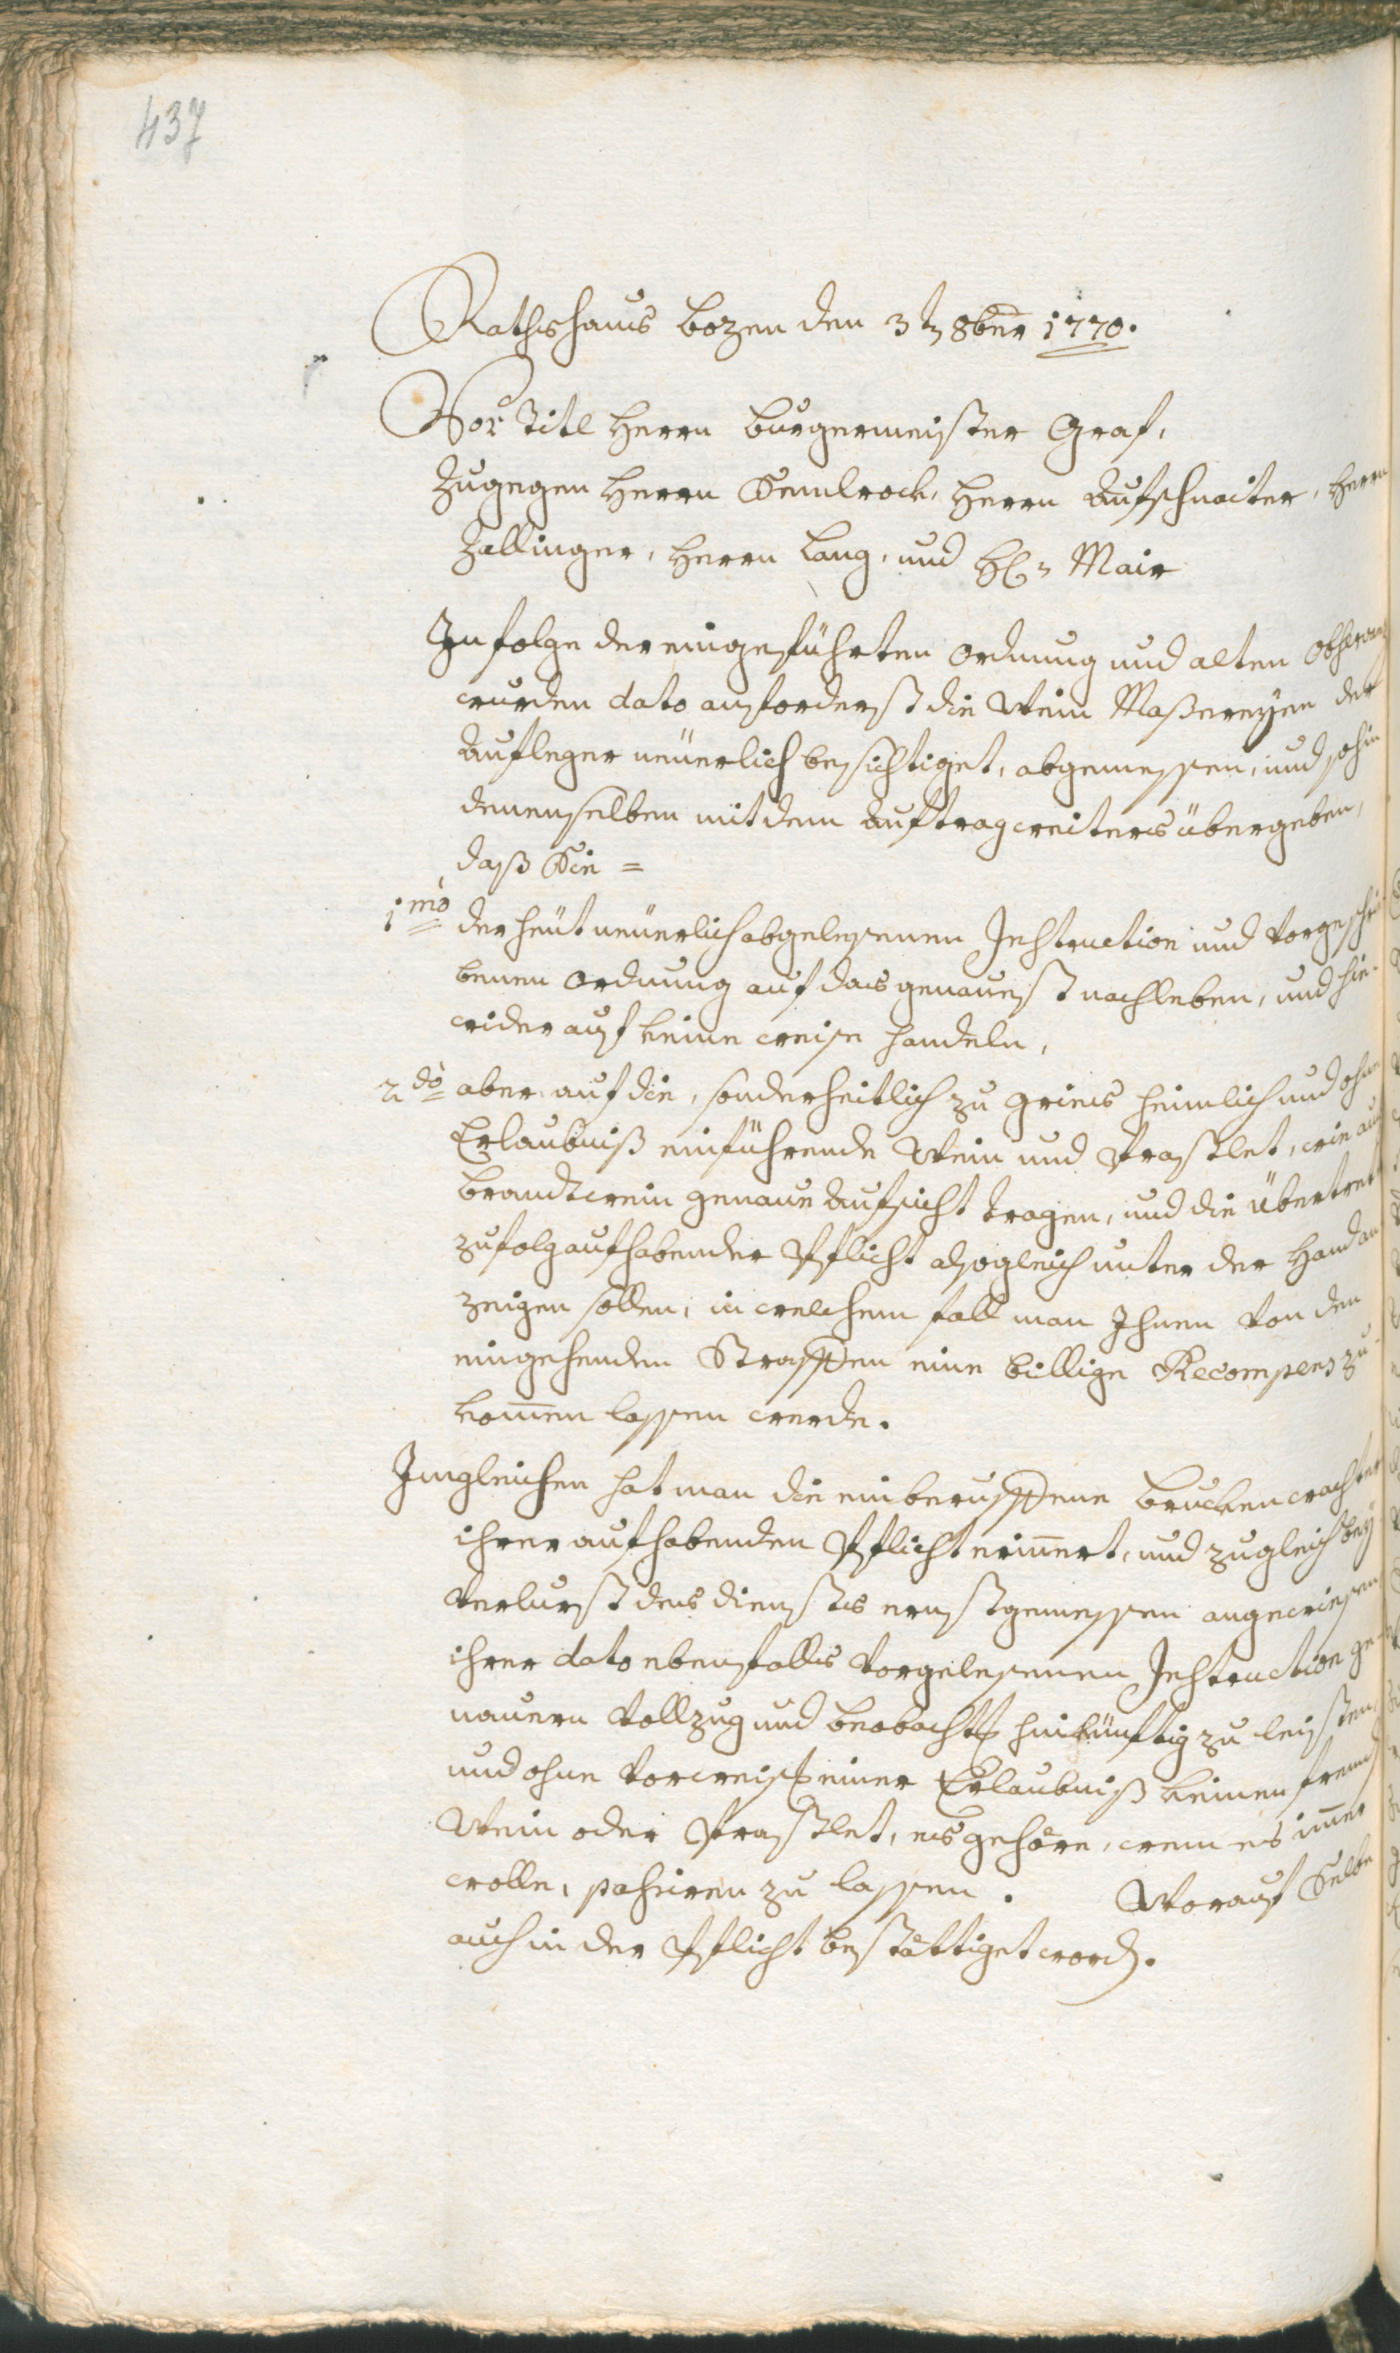 437
Rathshaus Bozen den 3tn 8ber 1770.
Vor Titl Herrn Burgermeister Graf,
Zugegen Herrn Semlrock, Herrn Aufschnaiter, Herrn
Zallinger, Herrn Lang, und H: Mair
In folge der eingeführten Ordnung und alten
wurden dato anforderst die Wein Maßereyen der
Aufleger neüerlich besichtiget, abgemessen, und sohin
denenselben mit dem Auftrag weiters übergeben,
daß Sie =
1mo der heüt neüerlich abgelesenen Instruction und vorgeschri
benen Ordnung auf das genaueist nachleben, und hie-
wider auf keine weise handeln,
2do aber auf die, sonderheitlich zu Gries heimlich und ohne
Erlaubniß einführende Wein und Prastlet, wie auch
Brandtwein genaue Aufsicht tragen, und die Übertret
zufolg aufhabender Pflicht alsogleich unter der Hand an
zeigen sollen; in welchem fall man Ihnen von den
eingehenden Straffen eine billige Recompens zu-
kommen lassen werde.
Imgleichen hat man die einberuffene Bruckenwachter
ihrer aufhabenden Pflicht erinnert, und zugleich bey
Verlurst des diensts ernstgemessen angewiesen
ihrer dato ebenfalls vorgelesenen Instruction ge-
nauern Vollzug und beobacht hinkünftig zu leisten,
und ohne vorweis einer Erlaubniß keinen fremd
Wein oder Prastlet, es gehöre, wem es immer
wolle, passiren zu lassen. Worauf Selbe
auch in der Pflicht bestättiget word.